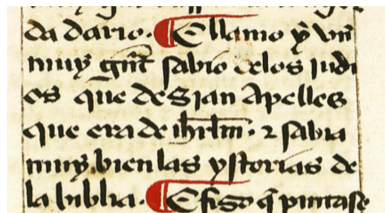 da dario. ¶ E llamo y vn
muy gñt sabio delos judi
os que desian Apelles
que era de ihrłm. ⁊ sabia
muy bien las ystorias de
la biblia. ¶ E fiso q̃ pintase